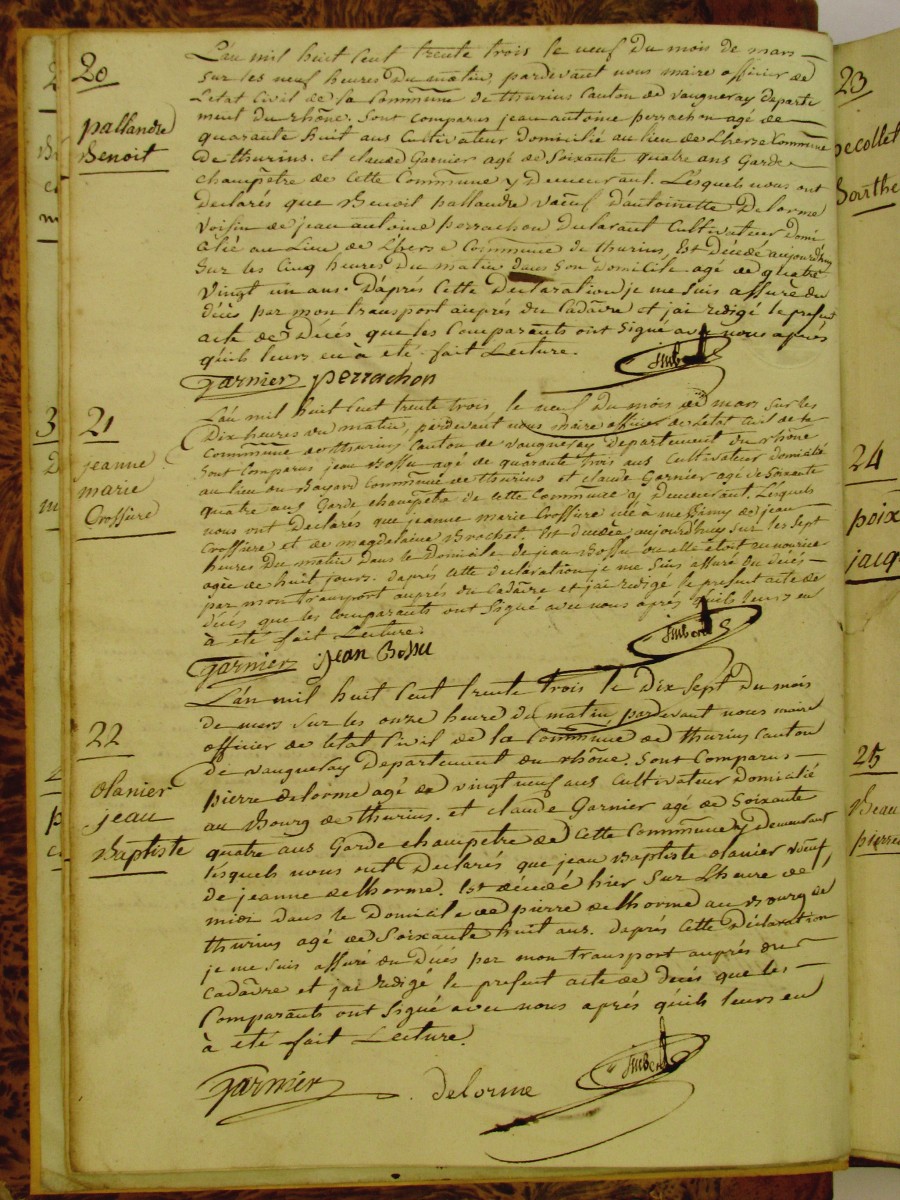 20
pallandre
Benoit
L'an mil huit Cent trente trois le neuf Du mois de mars
sur les neuf heures Du matin, pardevant nous maire officier de
L'etat Civil de la Commune de thurins Canton de vaugneray departe
ment du rhône. Sont Comparus jean antoine perrachon agé de
quarante huit ans Cultivateur domicilié au lieu de Lherse Commune
De thurins. et claude Garnier agé de Soixante quatre ans Garde
champêtre de Cette Commune y Demeurant. Lesquels nous ont
Declarés que Benoit pallandre vœuf d'antoinette Delorme
voisin de jean antoine perrachon Declarant Cultivateur domi
cilié au Lieu de Lherse Commune de thurins, Est Décédé aujourd'huy
Sur les Cinq heures Du matin dans Son domicile agé de quatre
vingt un ans. Daprès Cette Declaration je me suis assuré du
décès par mon transport auprès du Cadâvre et j'ai redigé le present
acte de Décés que les Comparants ont Signé avec nous après
qu'ils leurs en à eté fait Lecture.
garnier perrachon imbert
21
jeanne
marie
Crossiere
L'an mil huit Cent trente trois, le neuf Du mois de mars sur les
Dix heures du matin, pardevant nous maire officier de L'etat Civil de la
Commune de thurins Canton de vaugneray Departement du rhône
Sont Comparus jean Bossu agé de quarante trois ans Cultivateur domicilié
au lieu du Bayard Commune de thurins et claude Garnier agé de Soixante
quatre ans Garde champetre de cette Commune y Demeurant, Lesquels
nous ont Declarés que jeanne marie Crossiere née à messimy de jean
Crossiere et de magdelaine Brochet. Est décédée aujourd'huy sur les sept
heures Du matin Dans le Domicile de jean Bossu ou elle etoit en nourrice
agée de huit jours. daprès cette declaration je me suis assuré du décés
par mon transport auprès du Cadâvre et j'ai redigé le present acte de
décés que les Comparants ont Signé avec nous après qu'ils leurs en
à eté fait Lecture.
garnier jean Bossu imbert
22
olanier
jeau
Baptiste
L'an mil huit Cent trente trois le Dix sept Du mois
de mars sur les onze heure du matin, pardevant nous maire
officier de letat Civil de la Commune de thurins Canton
de vaugneray Departement du rhône. Sont Comparus
pierre delorme agé de vingt neuf ans Cultivateur Domicilié
au Bourg de thurins. et claude Garnier agé de Soixante
quatre ans Garde champetre de Cette Commune y demeurant
lesquels nous ont Declarés que jean Baptiste olanier vœuf
de jeanne delhorme. Est décédé hier Sur Lheure de
midi dans le Domicile de pierre delhorme au Bourg de
thurins agé de Soixante huit ans. daprès Cette Déclaration
je me suis assuré du Décés par mon transport auprès du
Cadâvre et j'ai redigé le present acte de décés que les
Comparants ont Signé avec nous après qu'ils leurs en
à eté fait Lecture.
garnier delorme imbert
23
24
poix
jacq
25
Beau
pierre